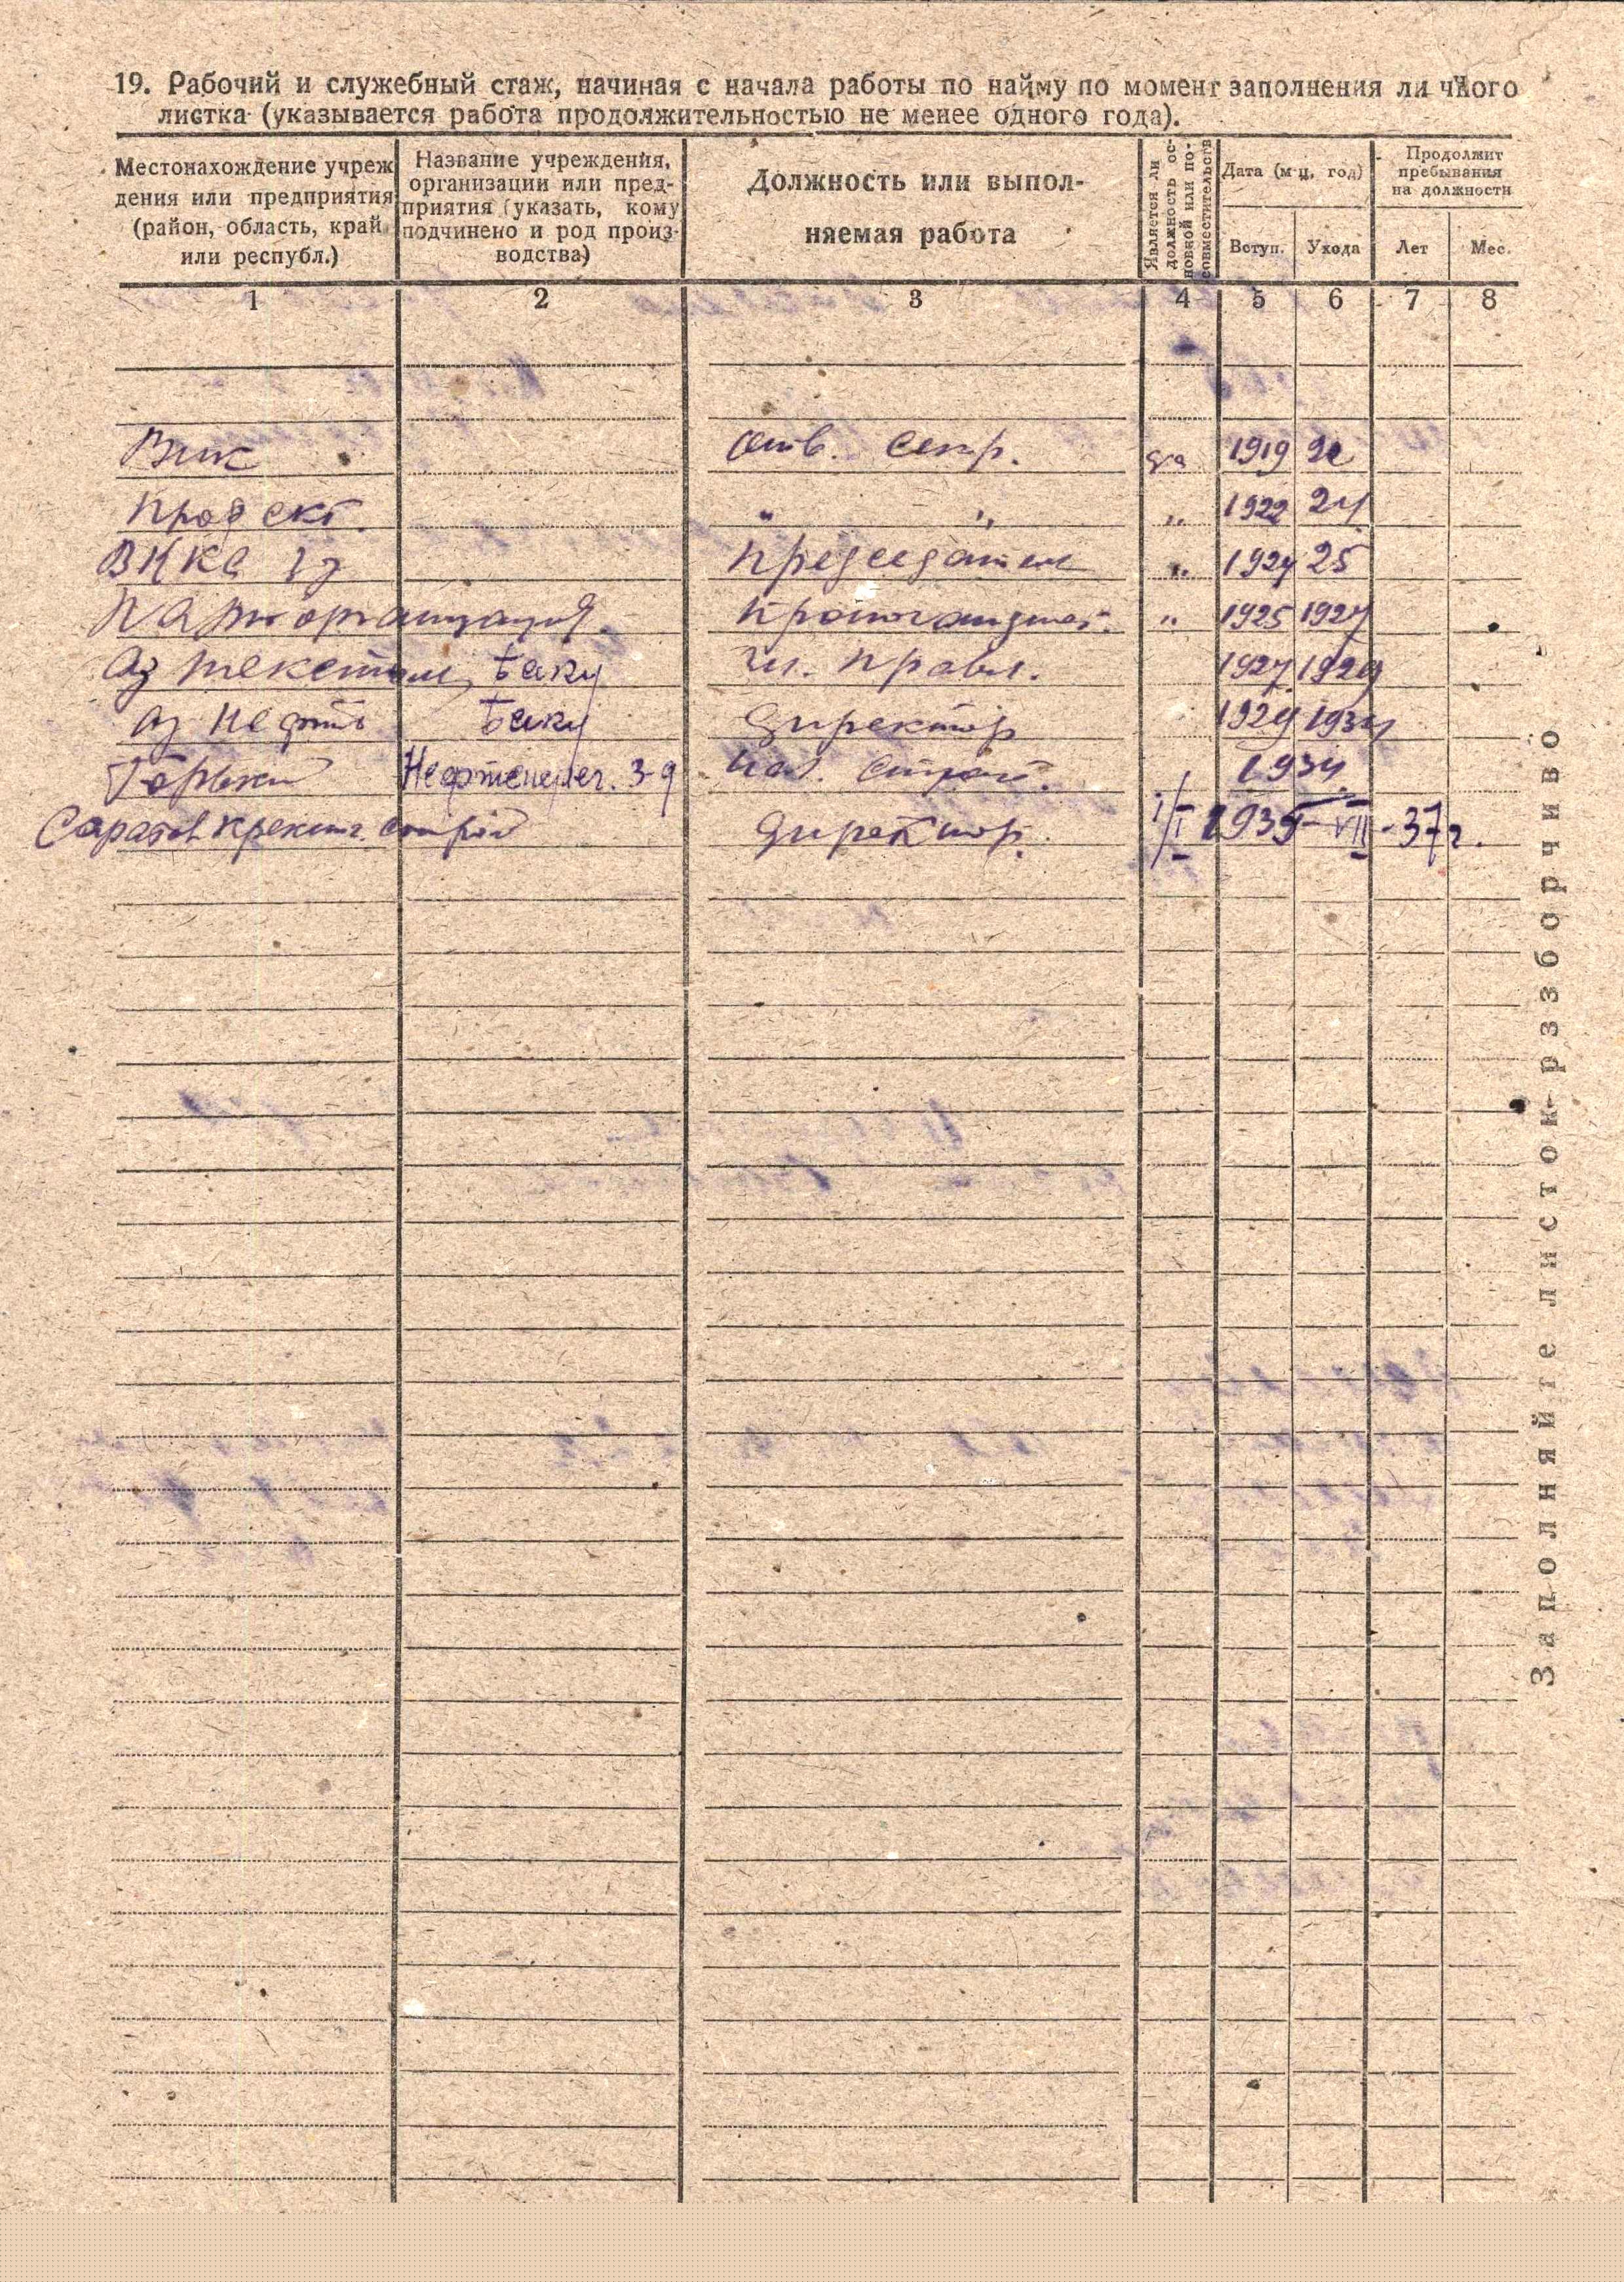 19. Рабочий и служебный стаж, начиная с начала работы по найму по момент заполнения личного
листка (указывается работа продолжительностью не менее одного года).
Местонахождение учреж
дения или предприятия
(район, область, край
или республ.)
Название учреждения,
организации или пред-
приятия (указать, кому
подчинено и род произ-
водства)
Должность или выпол-
няемая работа
Является ли
должность ос-
новной или по-
совместительств
Дата (м-ц, год)
Вступ. Ухода
Продолжит
пребывания
на должности
Лет Мес.
1 2 3 4 5 6 7 8
Вик отв. секр. да 1919
" " " 1922 24
Председатель " 1924 25
Парторганизация. Пропагандист. " 1925 1927
Аз текстиль, Баку чл. Правл. 1927 1929
Аз Нефть Баку Директор 1929 1934
Горький Нач. строй. 1934
Саратов крекинг строй Директор. 1/I 1935 - VII - 37 г.
Заполняйте листок рззборчиво